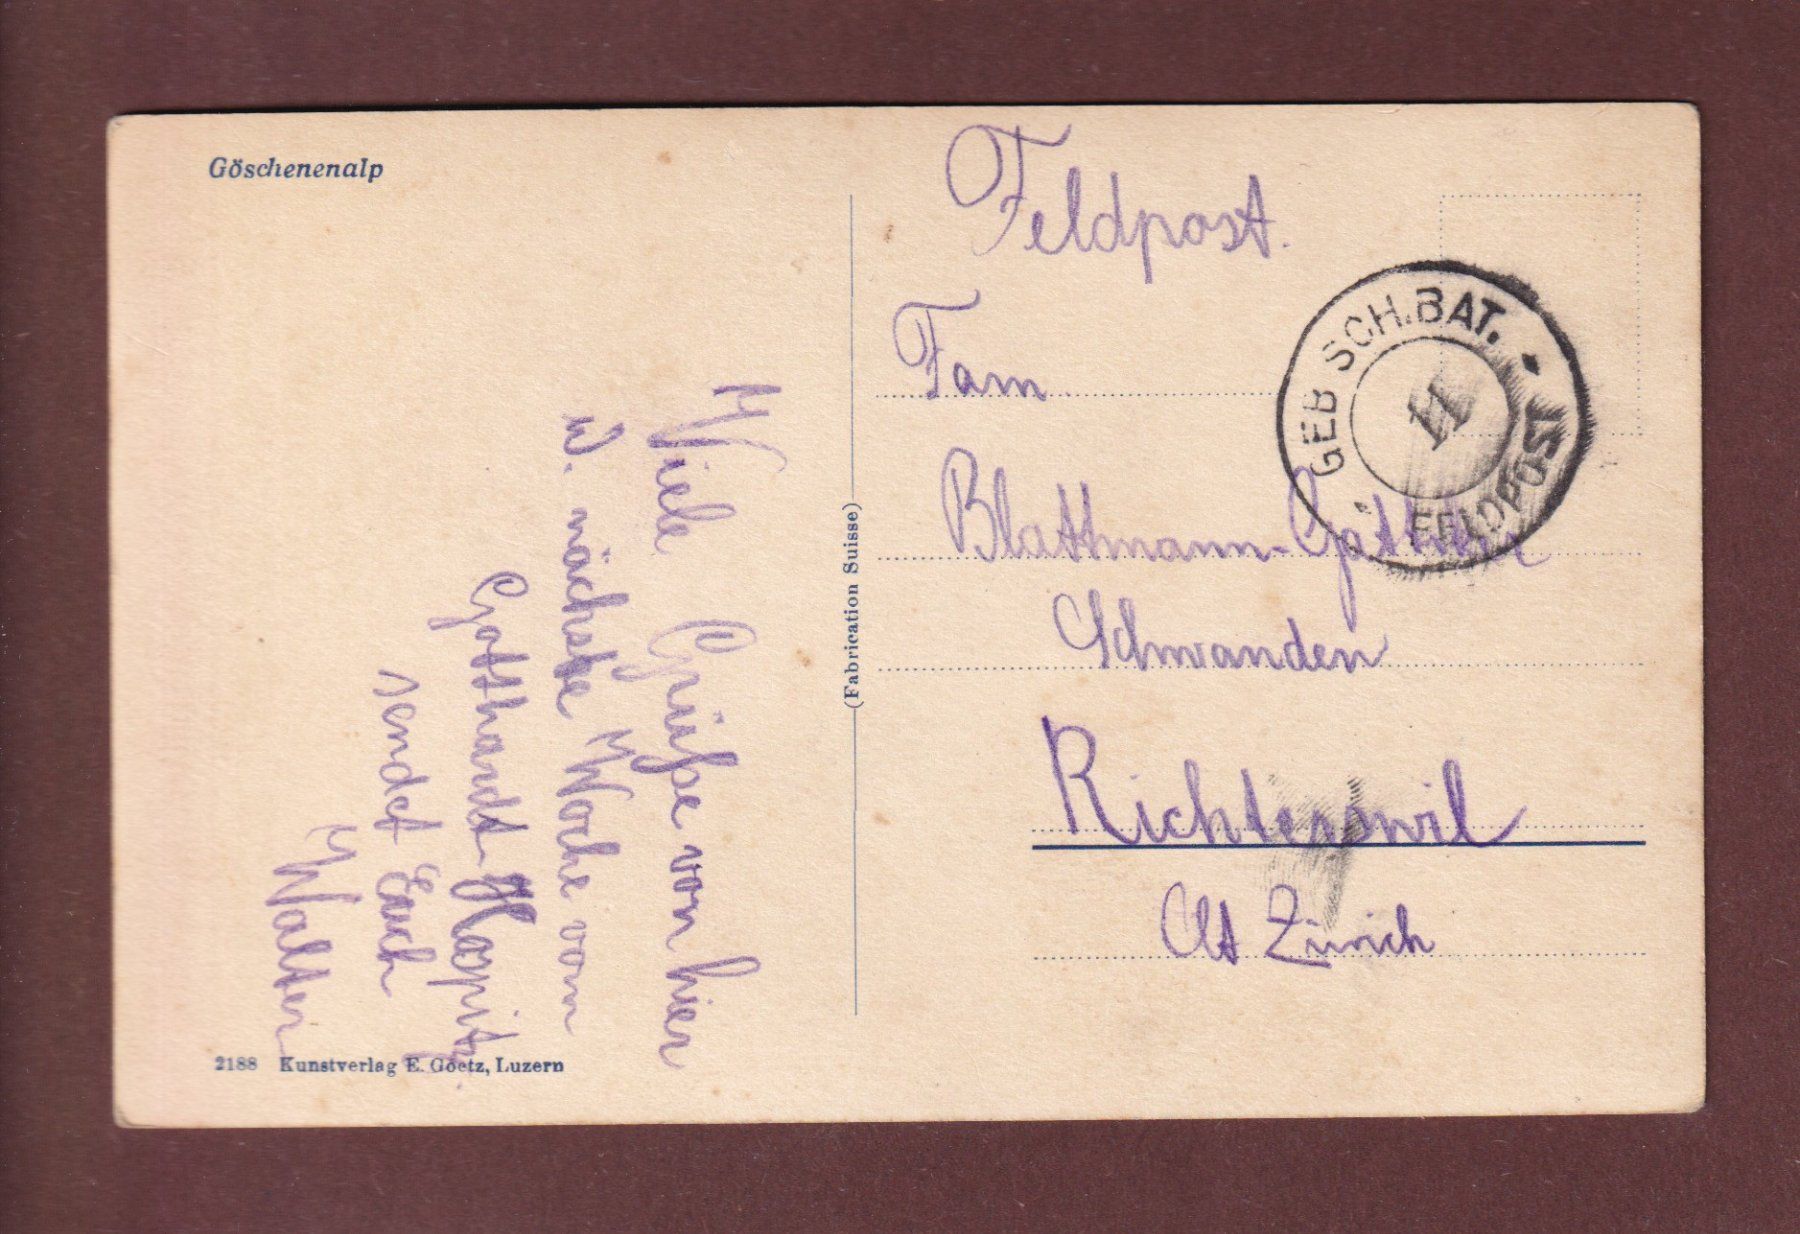 Göschenenalp
Viele Grüße von hier
u. nächste Woche vom
Gotthardt-Hospitz
sendet Euch
Walter
2188 Kunstverlag E. Goetz, Luzern
(Fabrication Suisse)
Feldpost.
GEB SCH. BAT. - FELDPOST
11
Fam.
Blattmann-Gattiker
Schwanden
Richterswil
Ct Zürich